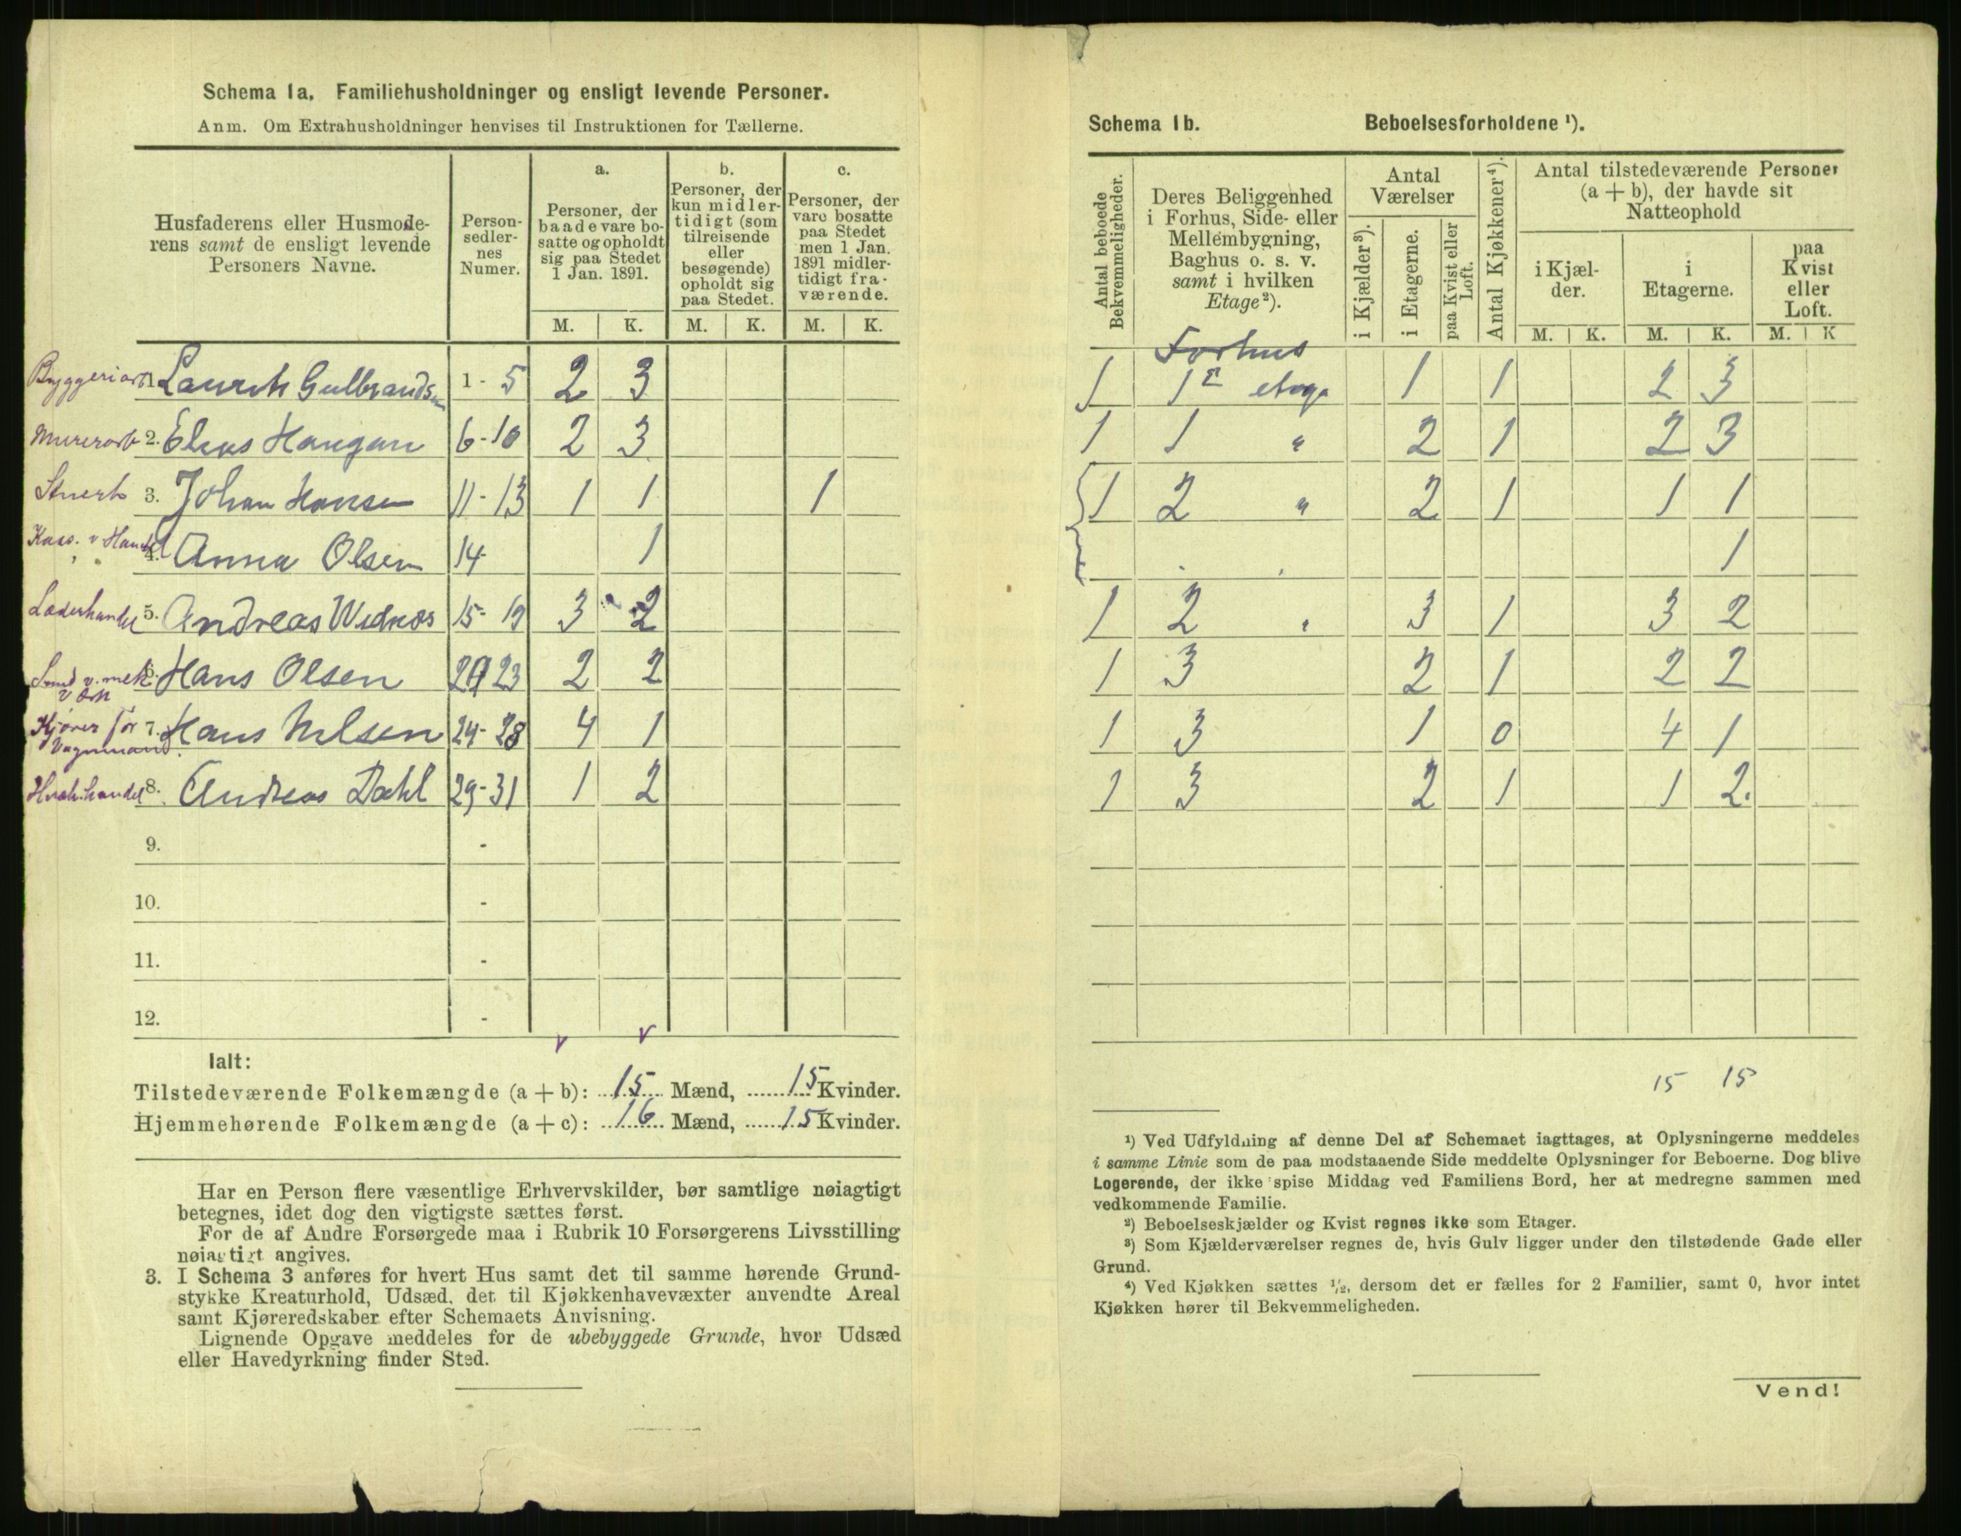 Schema 1a. Familiehusholdninger og ensligt levende Personer.
Anm. Om Extrahusholdninger henvises til Instruktionen for Tællerne.
Husfaderens eller Husmode-
rens samt de ensligt levende
Personers Navne.
Person-
sedler-
nes
Numer.
a.
Personer, der
baade vare bo-
satte og opholdt
sig paa Stedet
1 Jan. 1891.
b.
Personer, der
kun midler-
tidigt (som
tilreisende
eller
besøgende)
opholdt sig
paa Stedet.
c.
Personer, der
vare bosatte
paa Stedet
men 1 Jan.
1891 midler-
tidigt fra-
værende.
M. K. M. K. M. K.
1. Laurits Gulbrandsen 1 - 5 2 3
Murerarb 2. Elias Haugan 6-10 2 3
3. Johan Hansen 11-13 1 1 1
4. Anna Olsen 14 1
Læderhandel 5. Andreas 15-19 3 2
Smed v. mek. 6. Hans Olsen 23 2 2
v ærk
Kjører for 7. Hans Nilsen 24-28 4 1
Vognmand.
8. Andreas Dahl 29-31 1 2
9. -
10. -
11. -
12. -
Ialt:
Tilstedeværende Folkemængde (a + b): 15 Mænd, 15 Kvinder.
Hjemmehørende Folkemængde (a + c): 16 Mænd, 15 Kvinder.
Har en Person flere væsentlige Erhvervskilder, bør samtlige nøiagtigt
betegnes, idet dog den vigtigste sættes først.
For de af Andre Forsørgede maa i Rubrik 10 Forsørgerens Livsstilling
nøiagtigt angives.
3. I Schema 3 anføres for hvert Hus samt det til samme hørende Grund-
stykke Kreaturhold, Udsæd, det til Kjøkkenhavevæxter anvendte Areal
samt Kjøreredskaber efter Schemaets Anvisning.
Lignende Opgave meddeles for de ubebyggede Grunde, hvor Udsæd
eller Havedyrkning finder Sted.
Schema 1b. Beboelsesforholdene ¹).
Antal beboede
Bekvemmeligheder.
Deres Beliggenhed
i Forhus, Side- eller
Mellembygning,
Baghus o. s. v.
samt i hvilken
Etage²).
Antal
Værelser
i Kjælder³).
i Etagerne.
paa Kvist eller
Loft.
Antal Kjøkkener⁴).
Antal tilstedeværende Personer
(a + b), der havde sit
Natteophold
i Kjæl-
der.
i
Etagerne.
paa
Kvist
eller
Loft.
M. K. M. K. M. K
Forhus
1 1 etage 1 1 2 3
1 1 " 2 1 2 3
1 2 " 2 1 1 1
1
1 2 " 3 1 3 2
1 3 2 1 2 2
1 3 1 0 4 1
1 3 2 1 1 2.
15 15
¹) Ved Udfyldning af denne Del af Schemaet iagttages, at Oplysningerne meddeles
i samme Linie som de paa modstaaende Side meddelte Oplysninger for Beboerne. Dog blive
Logerende, der ikke spise Middag ved Familiens Bord, her at medregne sammen med
vedkommende Familie.
²) Beboelseskjælder og Kvist regnes ikke som Etager.
³) Som Kjælderværelser regnes de, hvis Gulv ligger under den tilstødende Gade eller
Grund.
⁴) Ved Kjøkken sættes ¹/₂, dersom det er fælles for 2 Familier, samt 0, hvor intet
Kjøkken hører til Bekvemmeligheden.
Vend!